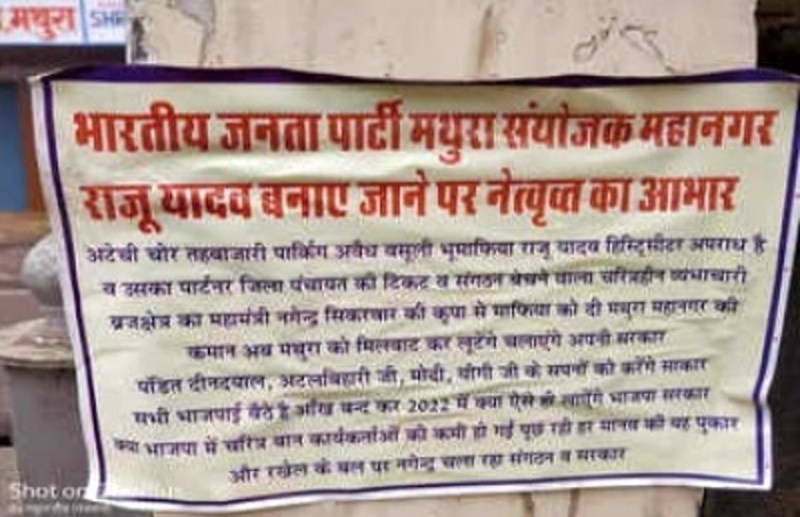 मथुरा
SHR
भारतीय जनता पार्टी मथुरा संयोजक महानगर
राजू यादव बनाए जाने पर नेत्वृत्व का आभार
अटेची चोर तहबाजारी पार्किंग अवैध वसूली भूमाफिया राजू यादव हिस्ट्रिसीटर अपराध है
व उसका पार्टनर जिला पंचायत की टिकट व संगठन बेचने वाला चरित्रहीन व्यभाचारी
ब्रजक्षेत्र का महामंत्री नगेन्द्र सिकरवार की कृपा से माफिया को दी मथुरा महानगर की
कमान अब मथुरा को मिलबाट कर लूटेंगे चलाएंगे अपनी सरकार
पंडित दीनदयाल, अटलबिहारी जी, मोदी, योगी जी के सपनों को करेंगे साकार
सभी भाजपाई बैठे है आँख बन्द कर 2022 में क्या ऐसे ही लाएंगे भाजपा सरकार
क्या भाजपा में चरित्र वान कार्यकर्ताओं की कमी हो गई पूछ रही हर मानव की यह पुकार
और रखेल के बल पर नगेन्द्र चला रहा संगठन व सरकार
Shot on